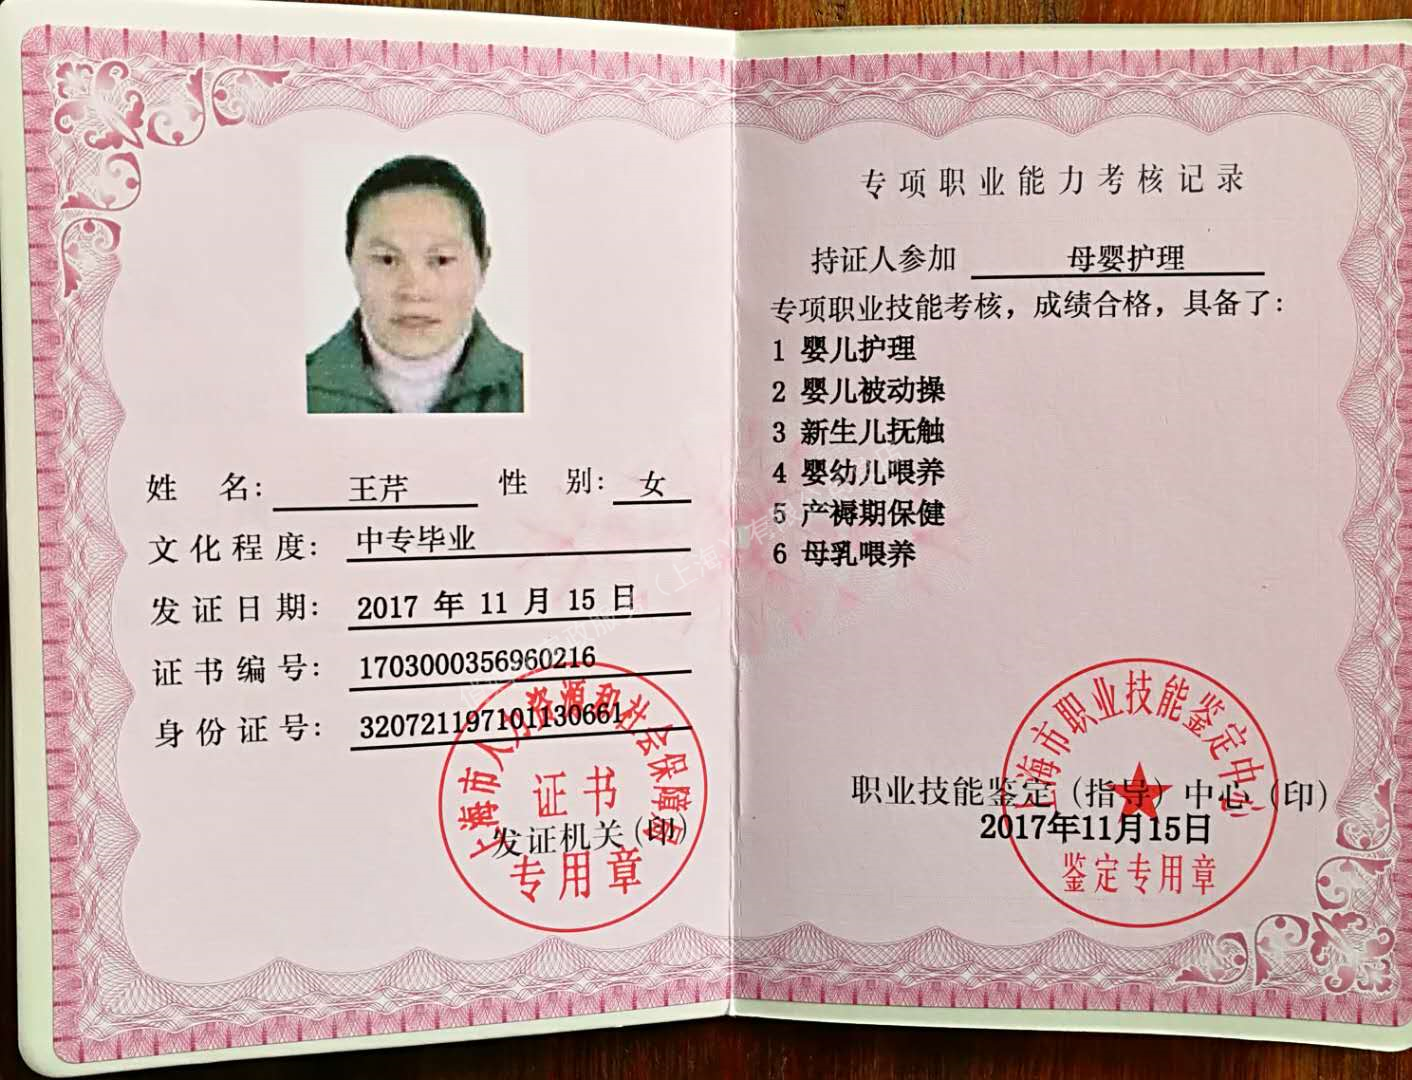 姓 名： 王芹 性 别： 女
文化程度： 中专毕业
发证日期： 2017 年 11 月 15 日
证书编号： 1703000356960216
身份证号： 320721197101130661
上海市人力资源和社会保障局
证书
发证机关(印)
专用章
专项职业能力考核记录
持证人参加 母婴护理
专项职业技能考核，成绩合格，具备了：
1 婴儿护理
2 婴儿被动操
3 新生儿抚触
4 婴幼儿喂养
5 产褥期保健
6 母乳喂养
上海市职业技能鉴定中心
职业技能鉴定（指导）中心（印）
2017年11月15日
鉴定专用章